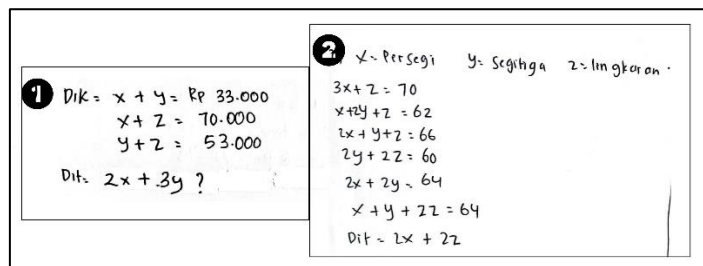 1
Dik = x + y = Rp 33.000
x + z = 70.000
y + z = 53.000
Dit = 2x + 3y ?
2
x = Persegi y = Segitiga z = lingkaran .
3x + z = 70
x + 2y + z = 62
2x + y + z = 66
2y + 2z = 60
2x + 2y = 64
x + y + 2z = 64
Dit = 2x + 2z